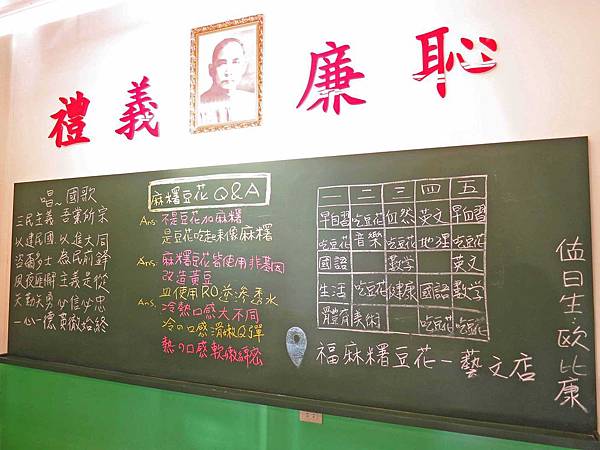 禮 義 廉 恥
唱~國歌
三民主義 吾黨所宗
以建民國 以進大同
咨爾多士 為民前鋒
夙夜匪懈 主義是從
矢勤矢勇 必信必忠
一心一德 貫徹始終
麻糬豆花Q&A
Ans. 不是豆花加麻糬
是豆花吃起來像麻糬
Ans. 麻糬豆花皆使用非基因
改造黃豆
且使用RO逆滲透水
Ans. 冷熱口感大不同
冷の口感滑嫩Q彈
熱の口感軟嫩綿密
一 二 三 四 五
早自習 吃豆花 自然 英文 早自習
吃豆花 音樂 吃豆花 地理 吃豆花
國語 數學 英文
生活 吃豆花 健康 國語 數學
體育 美術 吃豆花 吃豆花
福麻糬豆花-藝文店
值日生:歐比康